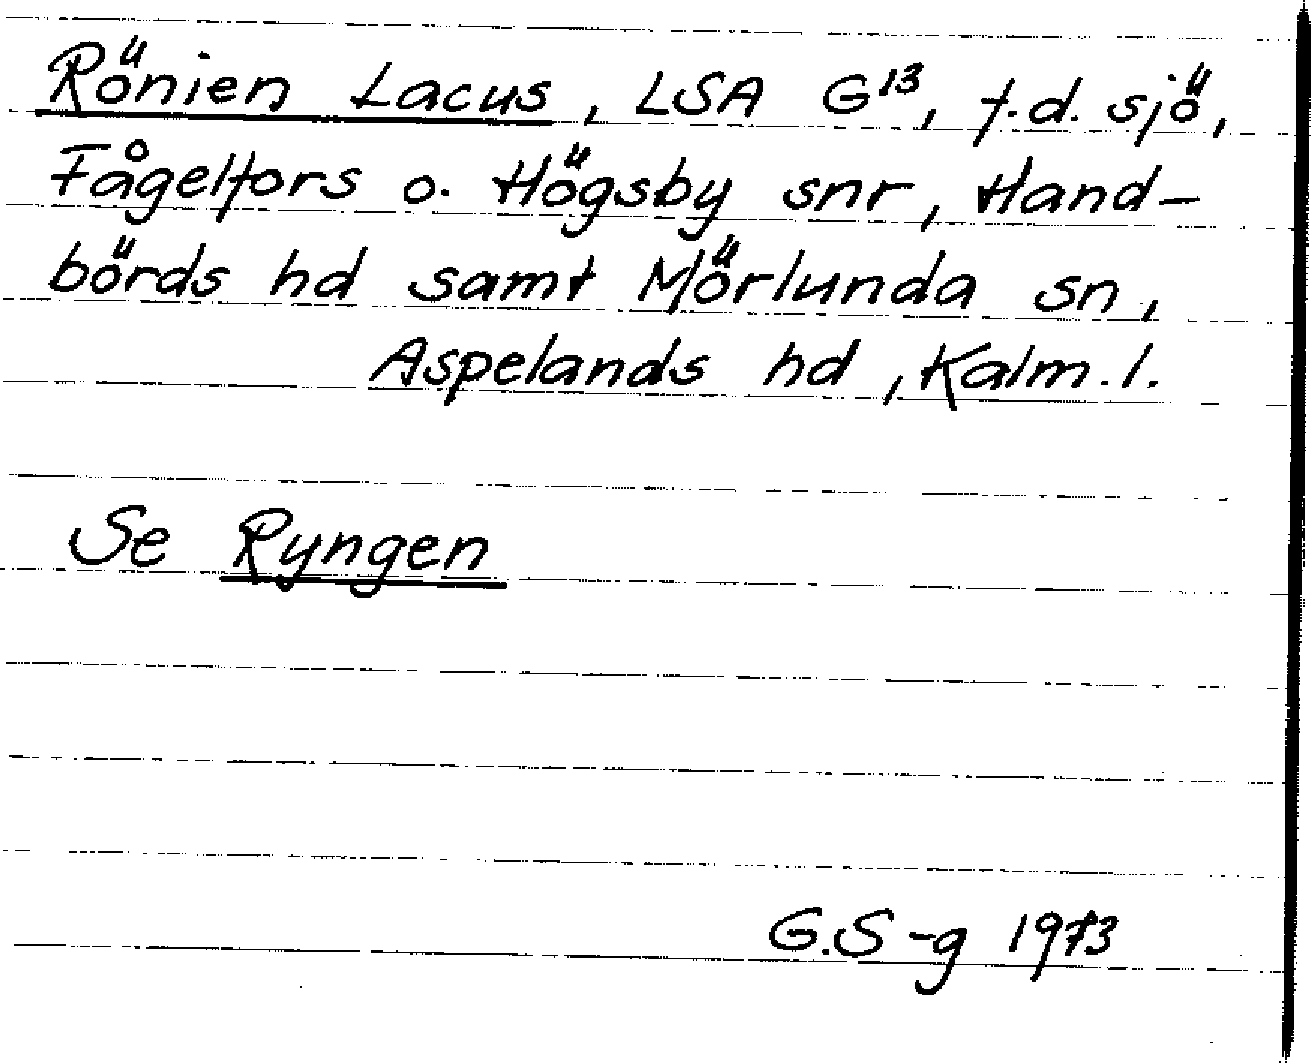 Rönien Lacus, LSA G13, f.d. sjö,
Fågelfors o. Högsby snr, Hand-
börds hd samt Mörlunda sn,
Aspelands hd, Kalm. l.
Se Ryngen
G.S-g 1973